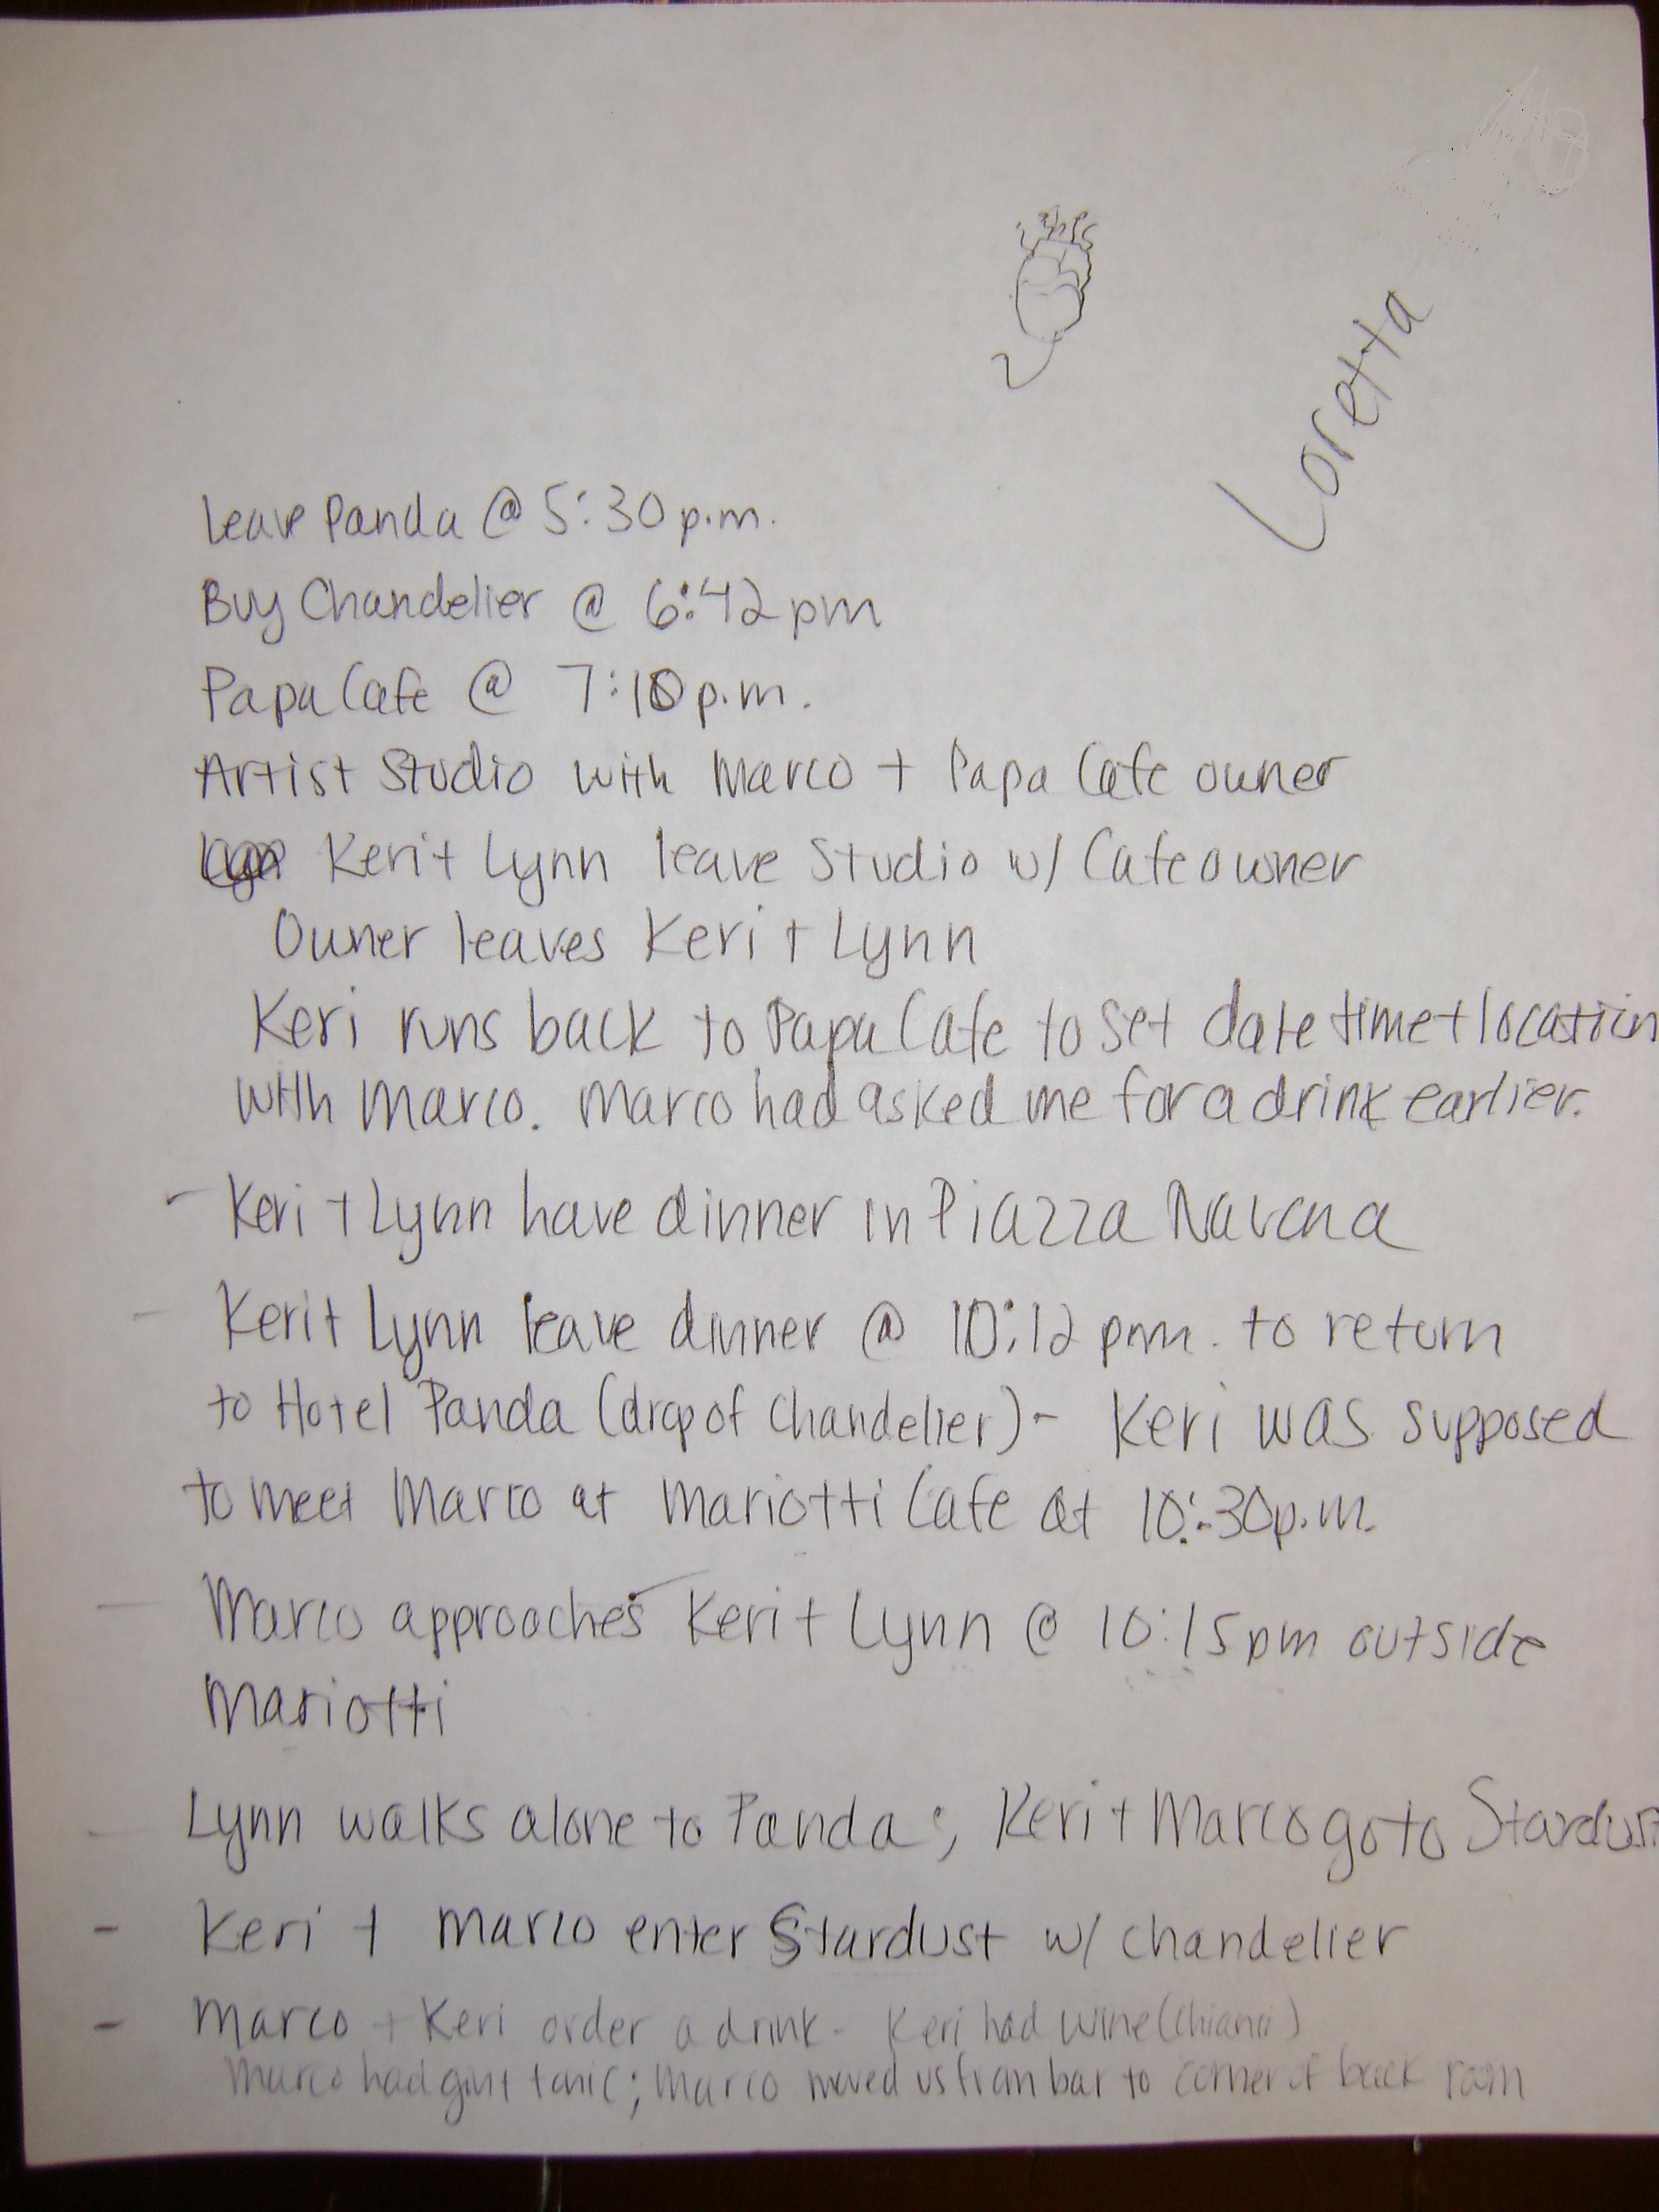 Loretta
Leave Panda @ 5:30 p.m.
Buy Chandelier @ 6:42 pm
Papa Cafe @ 7:10 p.m.
Artist Studio with Marco + Papa Cafe owner
Keri + Lynn leave Studio w/ Cafe owner
Owner leaves Keri + Lynn
Keri runs back to Papa Cafe to set date time + location
with Marco. Marco had asked me for a drink earlier.
- Keri + Lynn have dinner in Piazza Navona
- Keri + Lynn leave dinner @ 10:12 pm. to return
to Hotel Panda (drop of Chandelier) - Keri was supposed
to meet Marco at Mariotti Cafe at 10:30 p.m.
- Marco approaches Keri + Lynn @ 10:15 pm outside
Mariotti
- Lynn walks alone to Panda; Keri + Marco go to Stardust
- Keri + Marco enter Stardust w/ chandelier
- Marco + Keri order a drink - Keri had wine (chianti)
Marco had gin + tonic; Marco moved us from bar to corner of back room